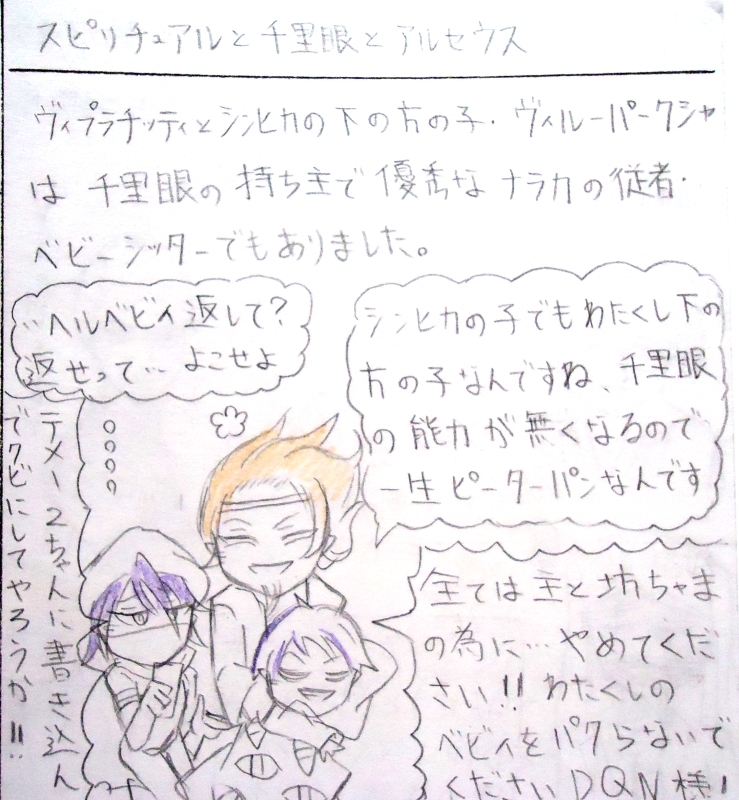 スピリチュアルと千里眼とアルセウス
ヴィプラチッティとシンヒカの下の方の子・ヴィルーパークシャ
は 千里眼の 持ち主で 優秀な ナラカの従者・
ベビーシッターでもありました。
シンヒカの子でもわたくし下の
方の子なんですね、千里眼
の能力が無くなるので
一生ピーターパンなんです
…ヘルベビィ返して?
返せって…よこせよ
全ては主と坊ちゃま
の為に…やめてくだ
さい!!わたくしの
ベビィをパクらないで
くださいDQN様!
テメー2ちゃんに書き込ん
でクビにしてやろうか!!